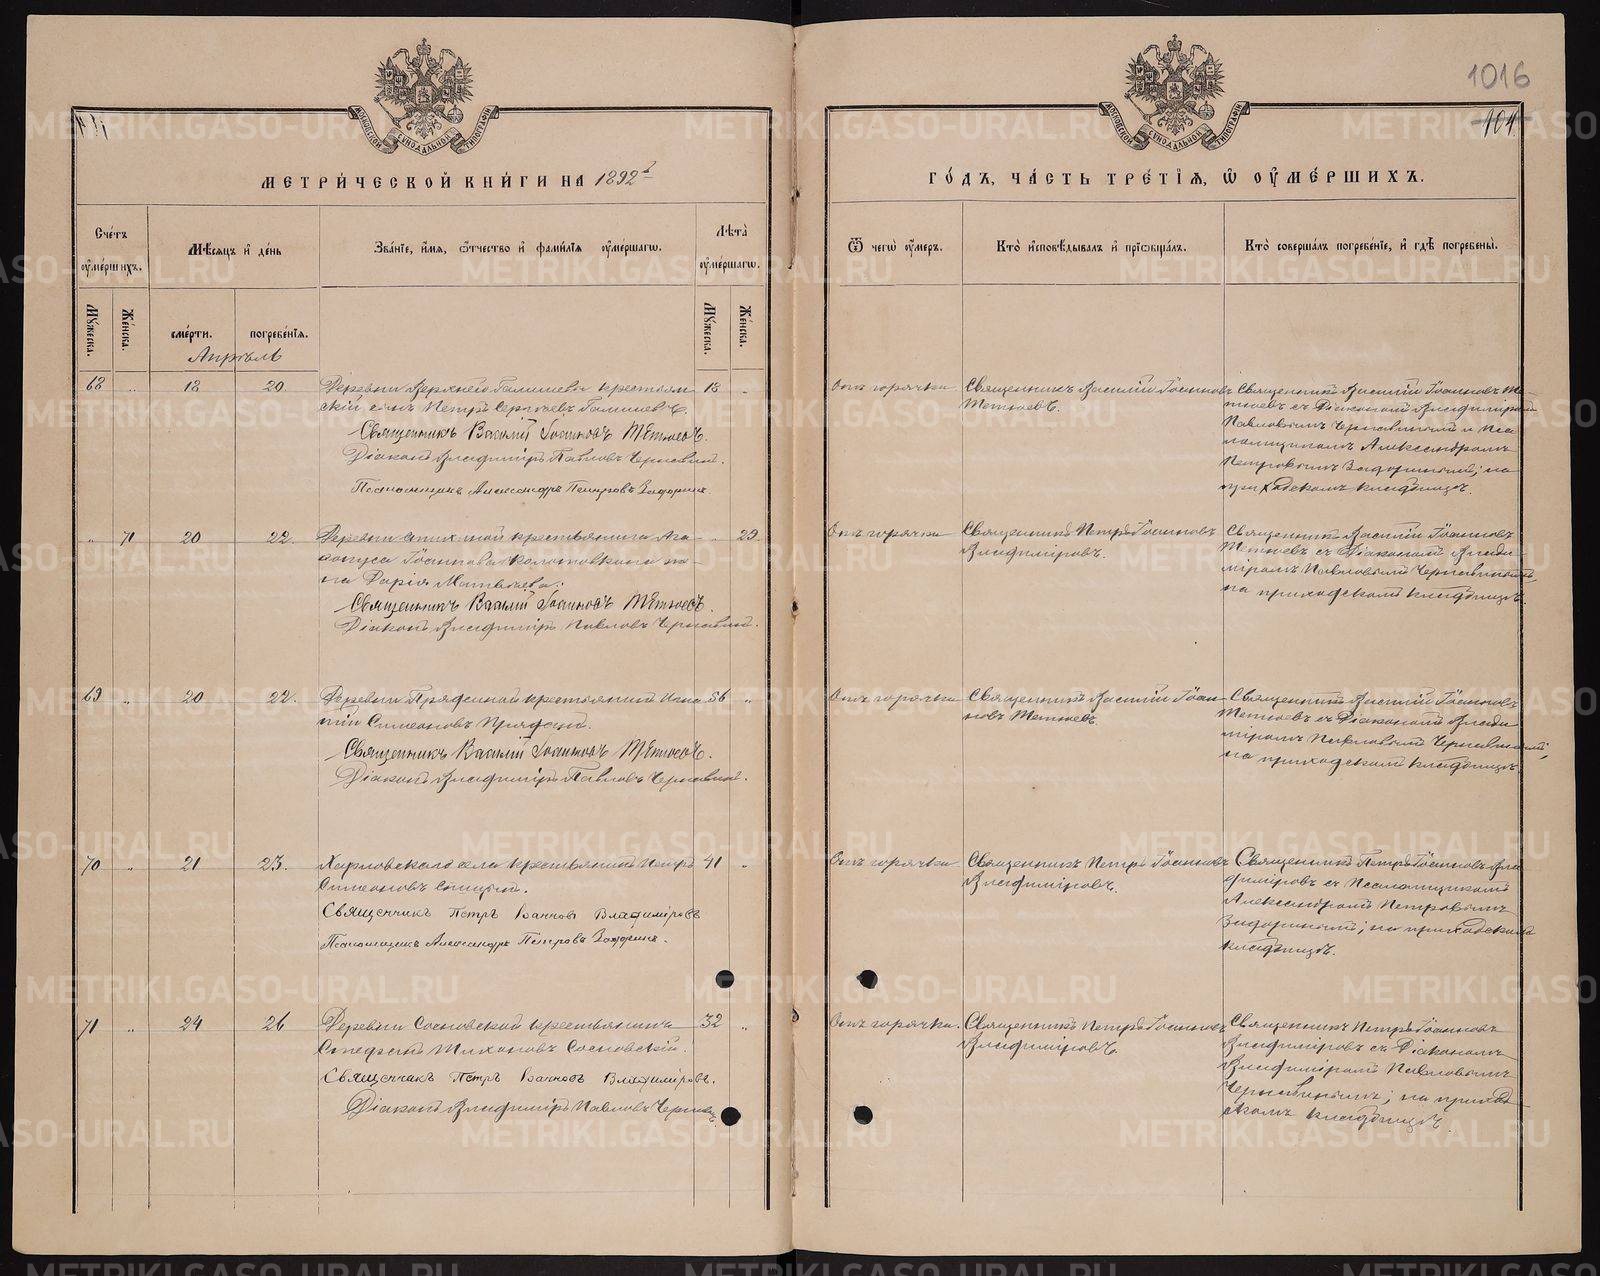 1016
104
МЕТРИ́ЧЕСКОЙ КНИ́ГИ НА 1892 г.
ГО́ДЪ, ЧА́СТЬ ТРЕ́ТІѦ, Ѿ ОУ҆МЕ́РШИХЪ.
Сче́тъ оу҆ме́ршихъ.
Мѣ́сяцъ и҆ де́нь
Зва́нїе, и҆́мѧ, ѻ҆́тчество и҆ фами́лїѧ оу҆ме́ршагѡ.
Лѣ́та оу҆ме́ршагѡ.
Ѿ чегѡ̀ оу҆́меръ.
Кто̀ и҆сповѣ́дывалъ и҆ прїѡбща́лъ.
Кто̀ соверша́лъ погребе́нїе, и҆ гдѣ̀ погребены̀.
Мꙋ́жеска.
Же́нска.
сме́рти.
погребе́нїя.
Мꙋ́жеска.
Же́нска.
Апрѣль
68 " 18 20
Деревни Верхнего Галишева крестьян- 18 "
скій сынъ Петръ Сергѣевъ Галишевъ.
Священникъ Василій Іоанновъ Тетюевъ.
Діаконъ Владиміръ Павловъ Чернавинъ.
Псаломщикъ Александръ Петровъ Задоринъ.
Отъ горячки
Священникъ Василій Іоанновъ
Тетюевъ.
Священникъ Василій Іоанновъ Те-
тюевъ съ Діакономъ Владиміромъ
Павловымъ Чернавинымъ и Пса-
ломщикомъ Александромъ
Петровымъ Задоринымъ; на
приходскомъ кладбищѣ.
" 71 20 22.
Деревни крестьянина Ага- " 29
Іоаннова же-
на Дарія Матвѣева.
Священникъ Василій Іоанновъ Тетюевъ.
Діаконъ Владиміръ Павловъ Чернавинъ.
Отъ горячки
Священникъ Петръ Іоанновъ
Владиміровъ.
Священникъ Василій Іоанновъ
Тетюевъ съ Діакономъ Влади-
міромъ Павловымъ Чернавинымъ,
на приходскомъ кладбищѣ.
69 " 20 22.
Деревни Прядеиной крестьянинъ Игна- 56 "
тій Симеоновъ Прядеинъ.
Священникъ Василій Іоанновъ Тетюевъ.
Діаконъ Владиміръ Павловъ Чернавинъ.
Отъ горячки
Священникъ Василій Іоан-
новъ Тетюевъ
Священникъ Василій Іоанновъ
Тетюевъ съ Діакономъ Влади-
міромъ Павловымъ Чернавинымъ,
на приходскомъ кладбищѣ.
70 " 21 23.
Харловскаго села крестьянинъ Петръ 41 "
Симеоновъ Спицынъ.
Священникъ Петръ Іоанновъ Владиміровъ
Псаломщикъ Александръ Петровъ Задоринъ.
Отъ горячки
Священникъ Петръ Іоанновъ
Владиміровъ.
Священникъ Петръ Іоанновъ Вла-
диміровъ съ Псаломщикомъ
Александромъ Петровымъ
Задоринымъ; на приходскомъ
кладбищѣ.
71 " 24 26
Деревни Сосновской крестьянинъ 32 "
Стефанъ Тихоновъ Сосновскій.
Священникъ Петръ Іоанновъ Владиміровъ.
Діаконъ Владиміръ Павловъ Чернавинъ.
Отъ горячки.
Священникъ Петръ Іоанновъ
Владиміровъ
Священникъ Петръ Іоанновъ
Владиміровъ съ Діакономъ
Владиміромъ Павловымъ
Чернавинымъ; на приход-
скомъ кладбищѣ.